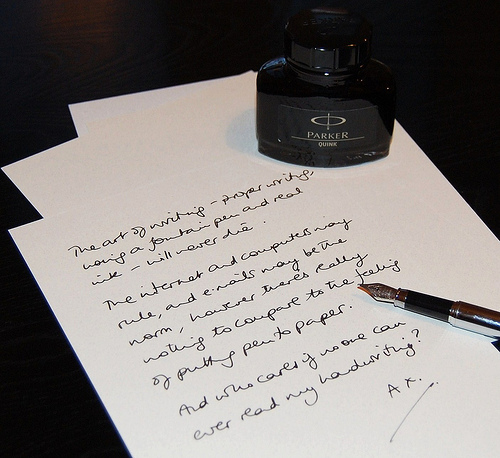 PARKER
QUINK
The art of writing – proper writing
using a fountain pen and real
ink – will never die.
The internet and computers may
rule, and e.mails may be the
norm, however there's really
nothing to compare to the feeling
of putting pen to paper.
And who cares if no one can
ever read my handwriting?
A.K.